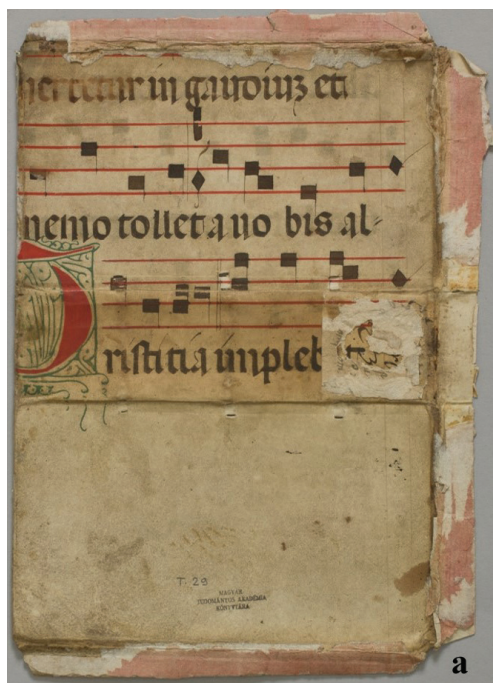 vertetur in gaudiuz et
nemo tollet a uo bis al-
Tristitia implebit
T. 29
MAGYAR
TUDOMÁNYOS AKADÉMIA
KÖNYVTÁRA
a